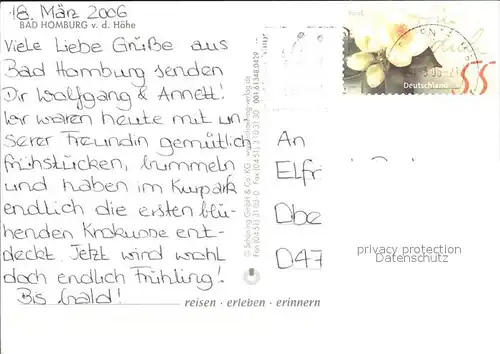 18. März 2006
BAD HOMBURG v. d. Höhe
Viele Liebe Grüße aus
Bad Homburg senden
Dir Wolfgang & Annett!
Wir waren heute mit un-
serer Freundin gemütlich
frühstücken, bummeln
und haben im Kurpark
endlich die ersten blü-
henden Krokusse ent-
deckt. Jetzt wird wohl
doch endlich Frühling!
Bis bald!
reisen · erleben · erinnern
© Schöning GmbH & Co. KG
Deutschland
55
An
Elfri
Obe
D47
privacy protection
Datenschutz